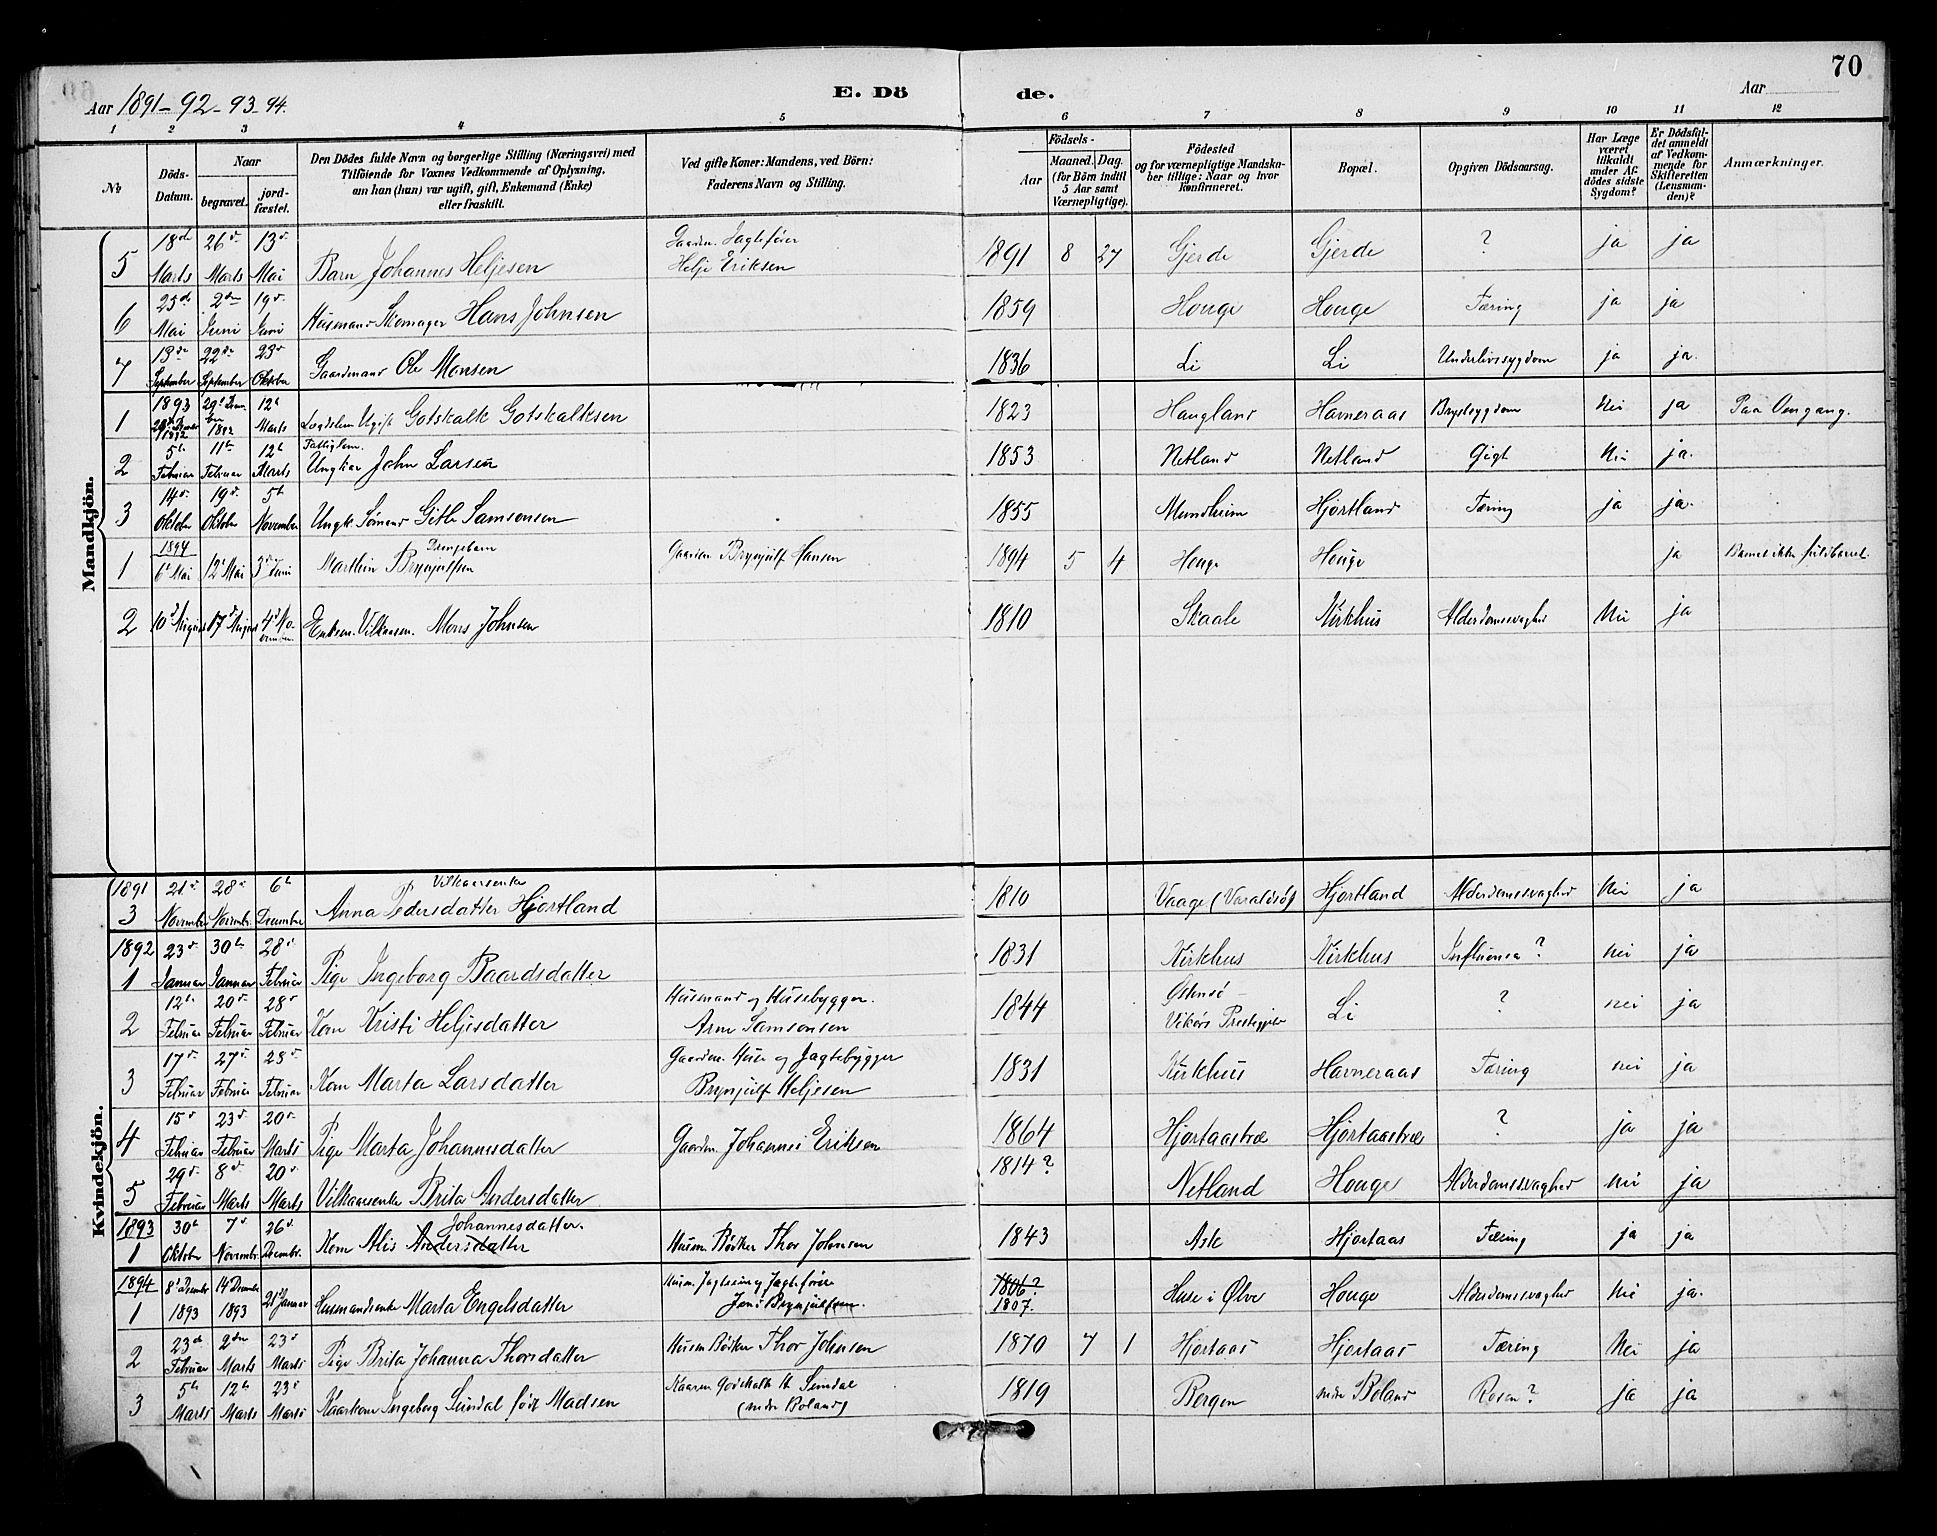 70
Aar 1891-92-93-94.
E. Dö de.
Aar
1 2 3 4 5 6 7 8 9 10 11 12
No
Döds-Datum.
Naar
begravet.
jordfæstet.
Den Dödes fulde Navn og borgerlige Stilling (Næringsvei) med Tilföiende for Voxnes Vedkommende af Oplysning, om han (hun) var ugift, gift, Enkemand (Enke) eller fraskilt.
Ved gifte Koner: Mandens, ved Börn: Faderens Navn og Stilling.
Födsels-
Aar
Maaned. Dag.
(for Börn indtil 5 Aar samt Værnepligtige).
Födested og for værnepligtige Mandskaber tillige: Naar og hvor konfirmeret.
Bopæl.
Opgiven Dödsaarsag.
Har Læge været tilkaldt under Afdödes sidste Sygdom?
Er Dödsfaldet anmeldt af Vedkommende for Skifteretten (Lensmanden)?
Anmærkninger.
Mandkjön.
5 18de Marts 26d Marts 13d Mai Barn Johannes Heljesen Gaardm. Jagtefører Helje Eriksen 1891 8 27 Gjerde Gjerde ? ja ja
6 25de Mai 2den Juni 19d Juni Husmand Skomager Hans Johnsen 1859 Houge Houge Tæring ja ja
7 13de September 22de September 23d Oktober Gaardmand Ole Monsen 1836 Li Li Underlivssygdom ja ja.
1 1893 1892 12te Marts Lægdslem Ugift Gotskalk Gotskalksen 1823 Haugland Havneraas Brystsygdom Nei ja Paa Omgang.
2 5te Februar 11te Februar 12te Marts Fattiglem. Ungkar John Larsen 1853 Netland Netland Gigt Nei ja.
3 14d. Oktober 19d. Oktober 5te November Ungk. Sømand Gitle Samsonsen 1855 Mundheim Hjortland Tæring ja ja.
1 1894 6te Mai 12te Mai 3d Juni Drengebarn Marthin Brynjulfsen Gaardm. Brynjulf Hansen 1894 5 4 Houge Houge ja Barnet ikke fuldbaaret
2 10d August 17d August 4d November Enkem. Vilkaarsm. Mons Johnsen 1810 Skaale Kirkhus Alderdomssvaghed Nei ja
Kvindekjön.
1891
3 21d November 28d November 6te December Vilkaarsenke Anna Pedersdatter Hjortland 1810 Vaage (Varaldsø) Hjortland Alderdomssvaghed Nei ja
1892
1 23d. Januar 30te Januar 28d Februar Pige Ingeborg Baardsdatter 1831 Kirkhus Kirkhus Influensa? nei ja
2 12te Februar 20d. Februar 28d Februar Kone Kristi Heljesdatter Husmand og Husebygger. Arne Samsonsen 1844 Østensø - Vikørs Prestegjeld Li ? nei ja
3 17d. Februar 27d. Februar 28d. Februar Kone Marta Larsdatter Gaardm. Huse og Jagtebygger Brynjulf Heljesen 1831 Kirkhus Havneraas Tæring nei ja
4 15d Februar 23d Februar 20d. Marts Pige Marta Johannesdatter Gaardm. Johannes Eriksen 1864 Hjortaastræ Hjortaastræ ? ja ja
5 29d. Februar 8d. Marts 20d. Marts Vilkaarsenke Brita Andersdatter 1814? Netland Houge Alderdomssvaghed Nei ja
1893
1 30te Oktober 7d. Novembr. 26d. Decembr. Kone Alis Andersdatter Johannesdatter. Husm. Bødker Thor Johnsen 1843 Ask Hjortaas Tæring ja ja
1894
1 8d Decembr 1893 14 Decembr 1893 21d Januar Husmandsenke Marta Engelsdatter Husm. Jagtefører Jens Brynjulfsen. 1806? 1807. Huse i Ølve Houge Alderdomssvaghed Nei ja.
2 23de Februar 2den Marts 23d Marts Pige Brita Johanna Thorsdatter Husm Bødker Thor Johnsen 1870 7 1 Hjortaas Hjortaas Tæring Nei ja
3 5te Marts 12te Marts 23d Marts Kaarkone Ingeborg Sundal født Madsen Kaarm. Godskalk H. Sundal (nedre Boland) 1819 Bergen nedre Boland Rosen? ja ja